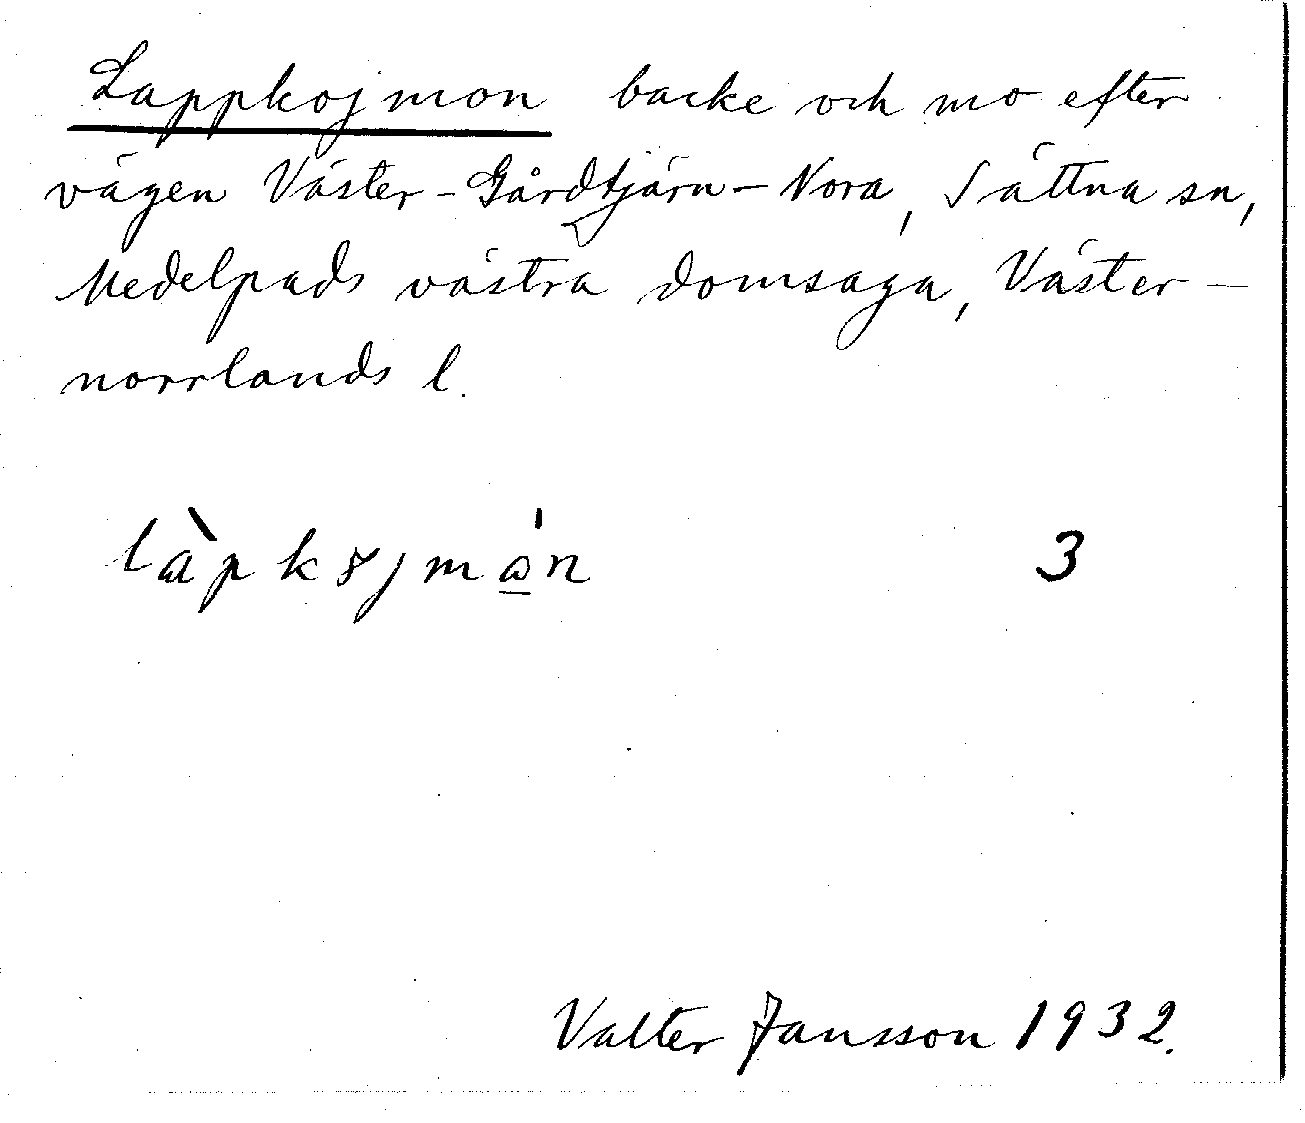 Lappkojmon backe och mo efter
vägen Väster-Gårdtjärn-Nora, Sättna sn,
Medelpads västra domsaga, Väster-
norrlands l.
3
Valter Jansson 1932.